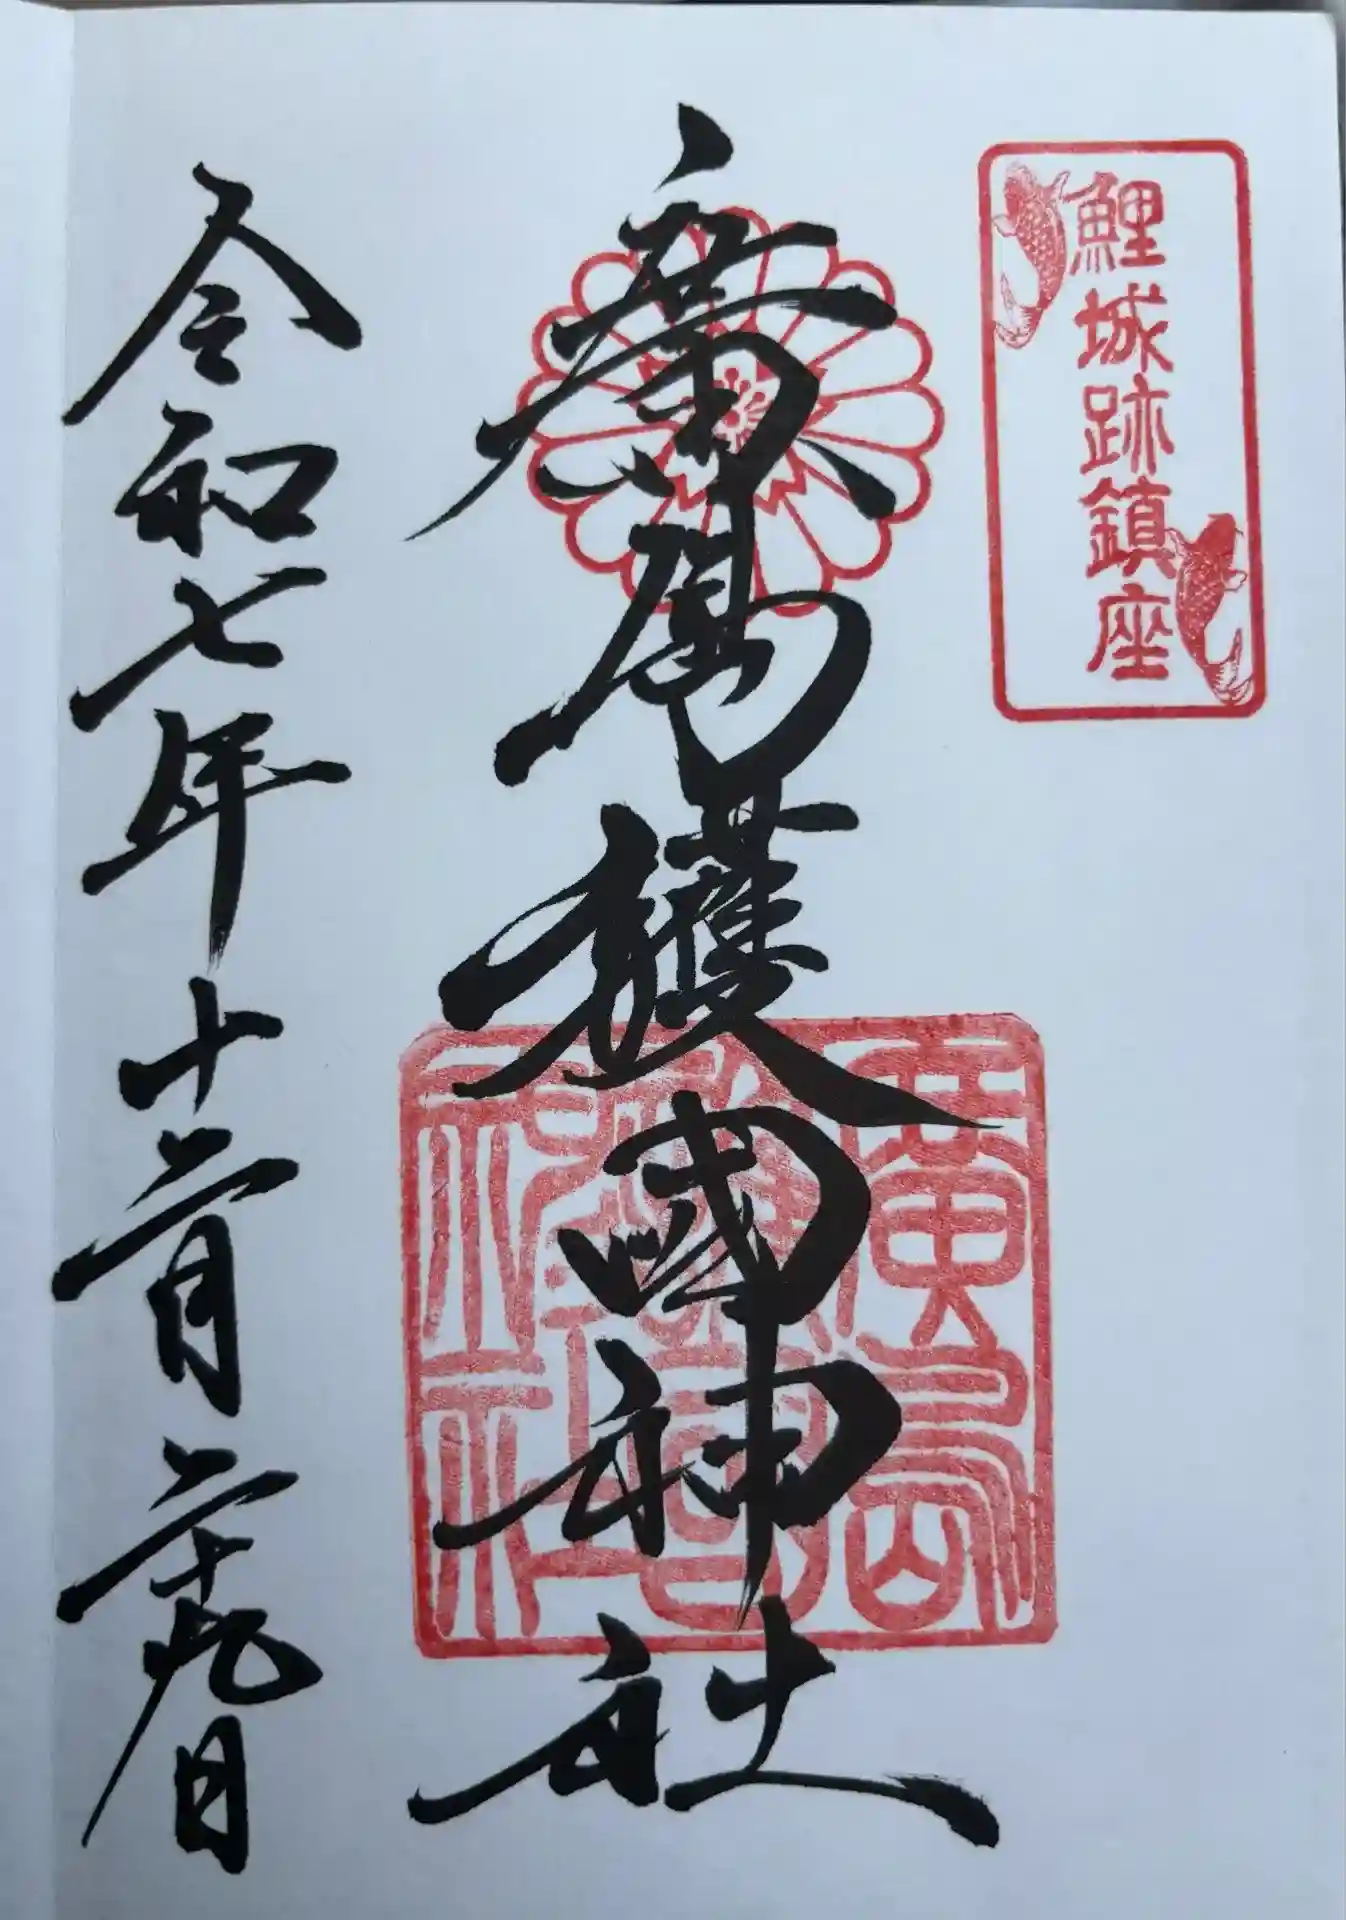 鯉城跡鎮座
廣島護國神社
廣島護國神社
令和七年十二月二十九日